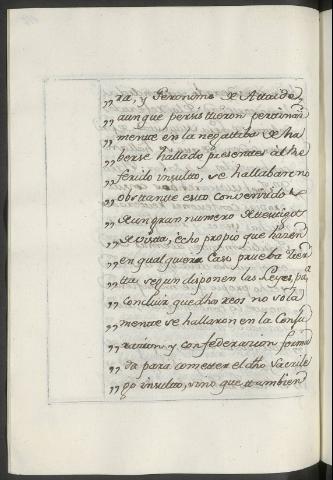 „ ra, y Geronimo de Ataide,
„ aunque persistieron pertinaz
„ mente en la negatiba de ha
„ berse hallado presentes al re
„ ferido insulto, se hallaban no
„ obstante esto convencidos
„ de un gran numero de testigos
„ de vista, echo propio que hazen
„ en qualquera Caso prueba
„ segun disponen las Leyes, pa
„ concluir que dhos reos no sola
„ mente se hallaron en la Conju
„ racion y confederacion forma
„ da para cometer el dho Sacrile
„ go insulto, sino que tambien